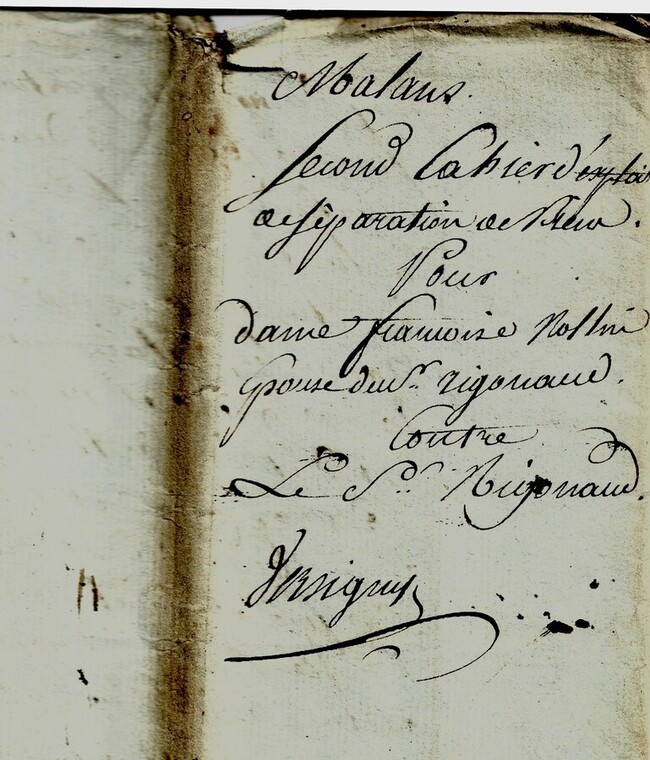 Malans.
Second Cahier d'exploi
de séparation de biens.
Pour
dame francoise Rollin
Epouse du Sr. rigonaud.
Contre
Le Sr. Rigonaud.
Versigny